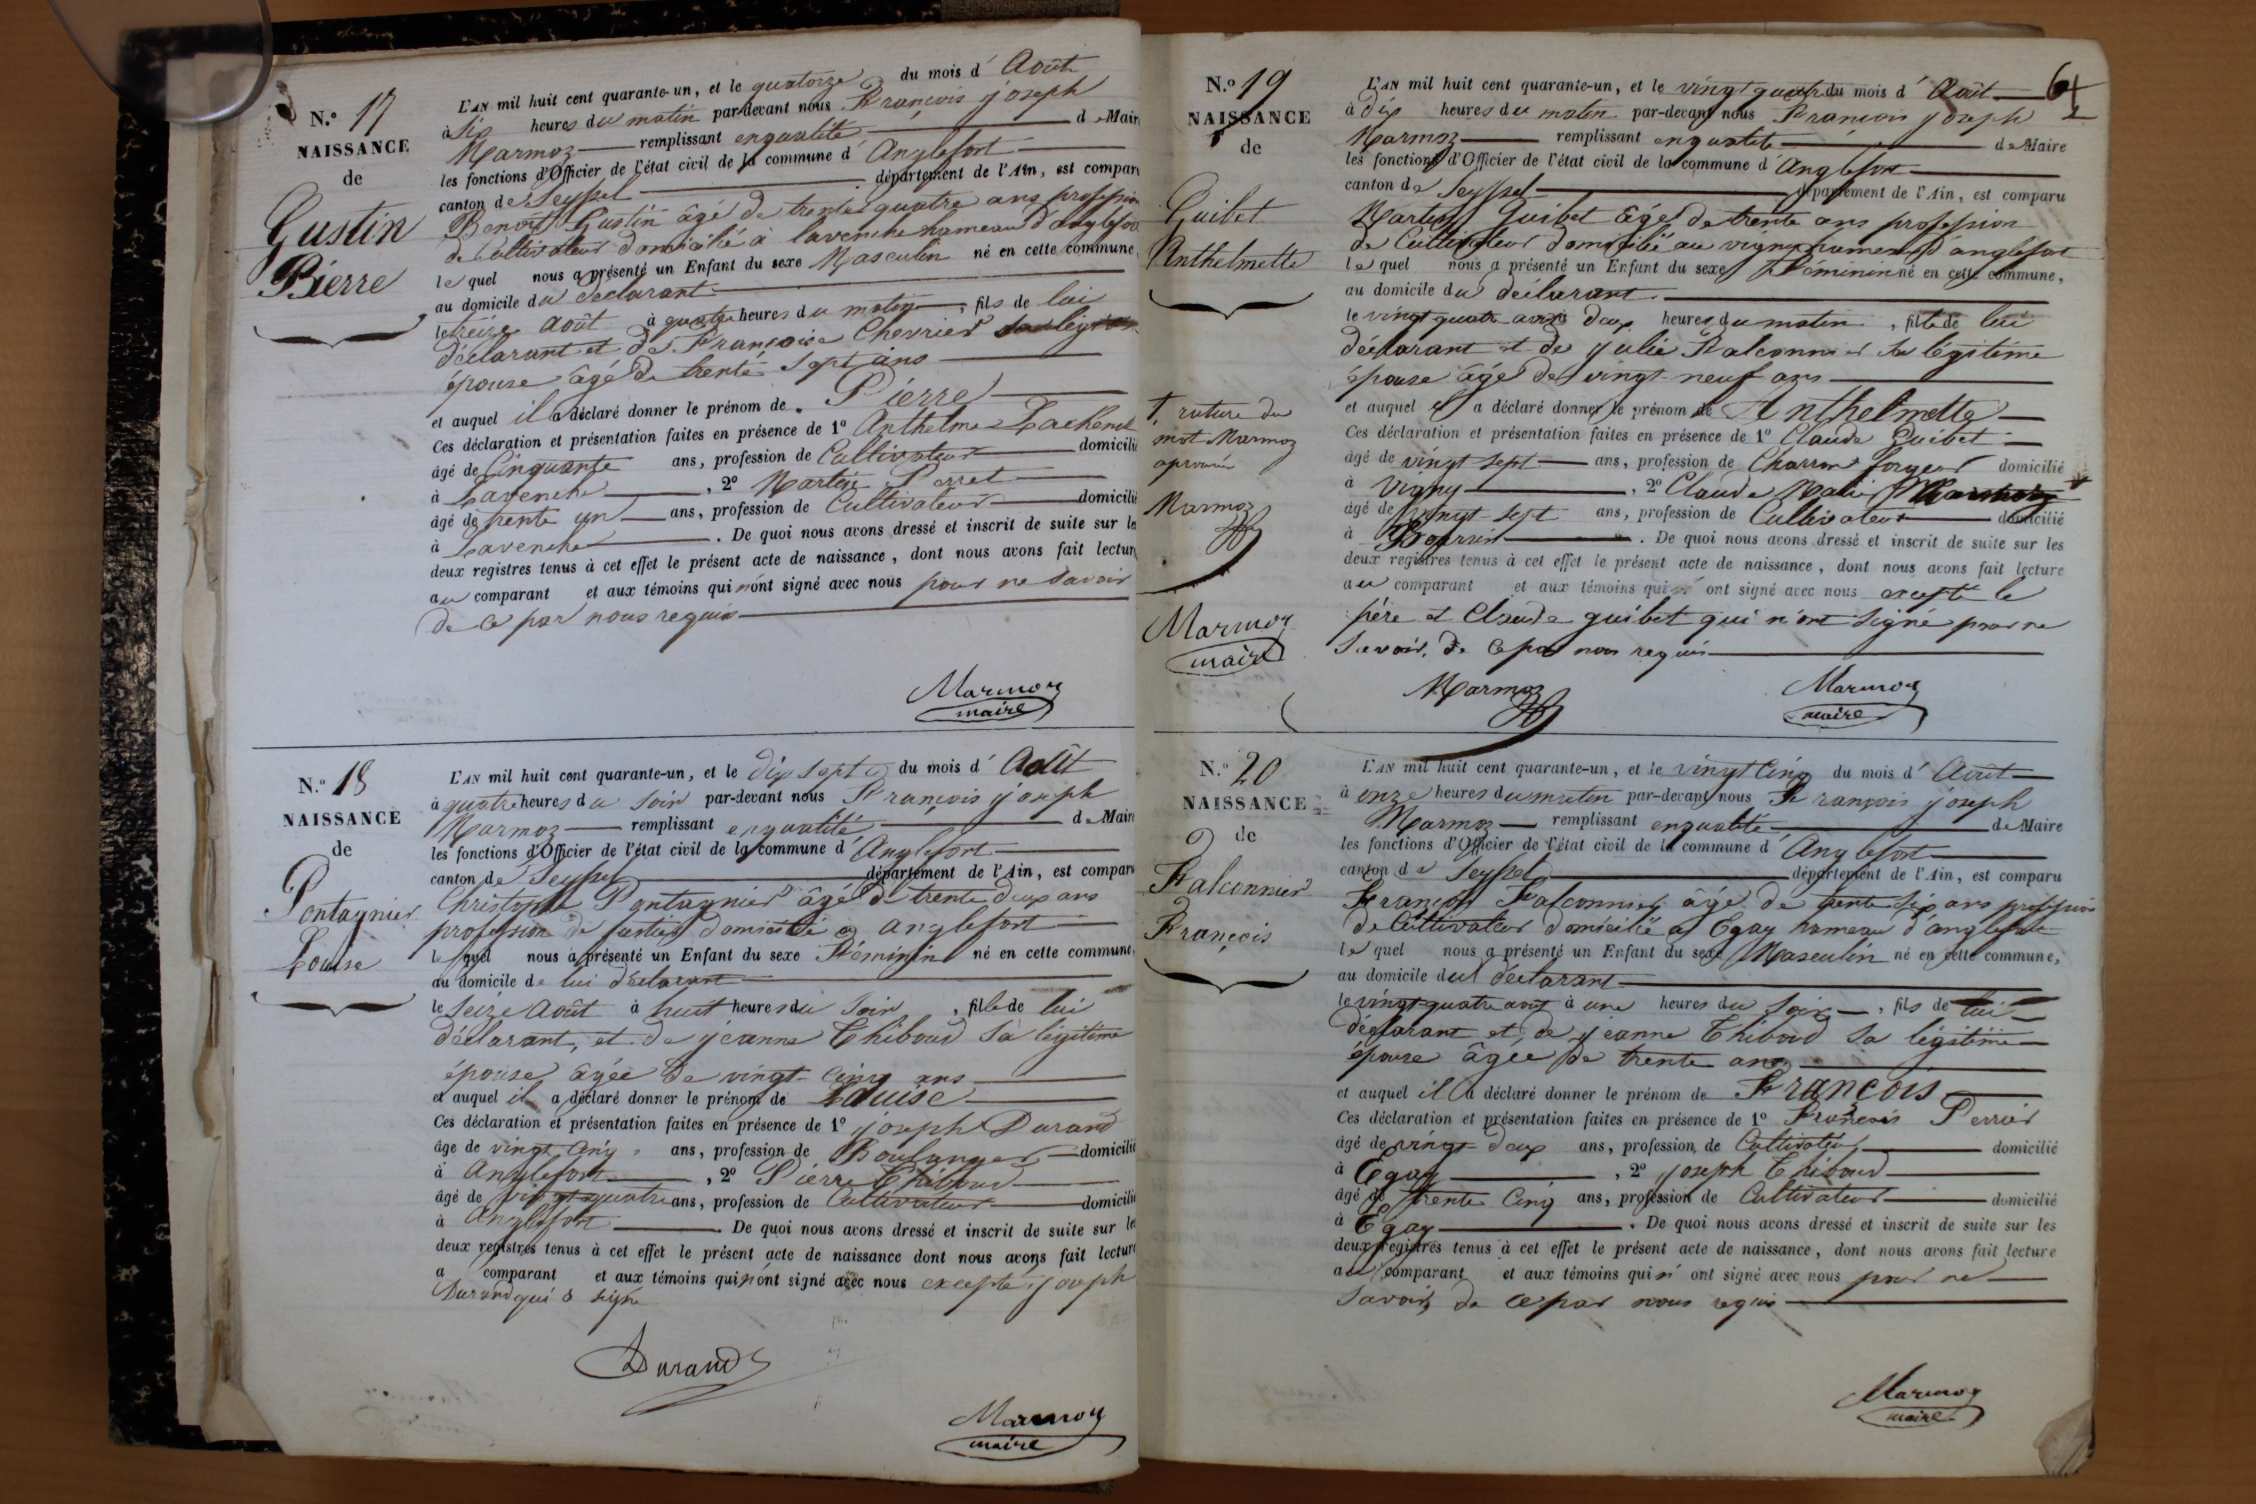 N.° 17
NAISSANCE
de
Gustin
Pierre
L'AN mil huit cent quarante-un, et le quatorze du mois d'Août
à six heures du matin par-devant nous François joseph
Marmoz remplissant enqualité de Maire
les fonctions d'Officier de l'état civil de la commune d'Anglefort
canton de Seyssel département de l'Ain, est comparu
Benoit Gustin âgé de trente quatre ans profession
de Cultivateur domicilié à lavenche hameau d'anglefort
lequel nous a présenté un Enfant du sexe Masculin né en cette commune,
au domicile du déclarant
le treize Août à quatre heures du matin, fils de lui
déclarant et de Françoise Chevrier sa légitime
épouse âgé de trente sept ans
et auquel il a déclaré donner le prénom de Pierre
Ces déclaration et présentation faites en présence de 1° Anthelme
âgé de Cinquante ans, profession de Cultivateur domicilié
à Lavenche, 2° Martin Perret
âgé de trente un ans, profession de Cultivateur domicilié
à Lavenche. De quoi nous avons dressé et inscrit de suite sur les
deux registres tenus à cet effet le présent acte de naissance, dont nous avons fait lecture
au comparant et aux témoins qui n'ont signé avec nous pour ne savoir
de ce par nous requis
Marmoz
maire
N.° 18
NAISSANCE
de
Pontagnier
Louise
L'AN mil huit cent quarante-un, et le dix sept du mois d'Août
à quatre heures du soir par-devant nous François joseph
Marmoz remplissant enqualité de Maire
les fonctions d'Officier de l'état civil de la commune d'Anglefort
canton de Seyssel département de l'Ain, est comparu
Christophe Pontagnier âgé de trente deux ans
profession de domicilié à anglefort
lequel nous a présenté un Enfant du sexe Féminin né en cette commune,
au domicile de lui déclarant
le seize Août à huit heures du soir, fille de lui
déclarant, et de jeanne Thiboud sa légitime
épouse âgée de vingt-cinq ans
et auquel il a déclaré donner le prénom de Louise
Ces déclaration et présentation faites en présence de 1° joseph Durand
âgé de vingt cinq ans, profession de Boulanger domicilié
à Anglefort, 2° Pierre Thiboud
âgé de vingt quatre ans, profession de Cultivateur domicilié
à Anglefort. De quoi nous avons dressé et inscrit de suite sur les
deux registres tenus à cet effet le présent acte de naissance dont nous avons fait lecture
a comparant et aux témoins qui n'ont signé avec nous excepté joseph
Durand qui a signé
Durand
Marmoz
maire
64
N.° 19
NAISSANCE
de
Guibet
Anthelmette
rature du
mot Marmoz
aprouvée
Marmoz
Marmoz
maire
L'AN mil huit cent quarante-un, et le vingt quatre du mois d'Août
à dix heures du matin par-devant nous François joseph
Marmoz remplissant enqualité de Maire
les fonctions d'Officier de l'état civil de la commune d'Anglefort
canton de Seyssel département de l'Ain, est comparu
Martin Guibet âgé de trente ans profession
de Cultivateur domicilié au vigny hameau d'anglefort
lequel nous a présenté un Enfant du sexe Féminin né en cette commune,
au domicile du déclarant
le vingt quatre août à deux heures du matin, fille de lui
déclarant et de julie Falconnier sa légitime
épouse âgé de vingt-neuf ans
et auquel il a déclaré donner le prénom de Anthelmette
Ces déclaration et présentation faites en présence de 1° Claude Guibet
âgé de vingt sept ans, profession de Charron forgeur domicilié
à Vigny, 2° Claude Marie Marmoz
âgé de vingt-sept ans, profession de Cultivateur domicilié
à . De quoi nous avons dressé et inscrit de suite sur les
deux registres tenus à cet effet le présent acte de naissance, dont nous avons fait lecture
au comparant et aux témoins qui ont signé avec nous excepté le
père et Claude guibet qui n'ont signé pour ne
savoir, de ce par nous requis
Marmoz
Marmoz
maire
N.° 20
NAISSANCE
de
Falconnier
François
L'AN mil huit cent quarante-un, et le vingt Cinq du mois d'Août
à onze heures du matin par-devant nous François joseph
Marmoz remplissant enqualité de Maire
les fonctions d'Officier de l'état civil de la commune d'Anglefort
canton de Seyssel département de l'Ain, est comparu
François Falconnier âgé de trente six ans profession
de Cultivateur domicilié à Egay hameau d'anglefort
lequel nous a présenté un Enfant du sexe Masculin né en cette commune,
au domicile du déclarant
le vingt quatre août à une heures du soir, fils de lui
déclarant et de jeanne Thiboud sa légitime
épouse âgée de trente ans
et auquel il a déclaré donner le prénom de François
Ces déclaration et présentation faites en présence de 1° François Perrier
âgé de vingt-deux ans, profession de Cultivateur domicilié
à Egay, 2° joseph Thiboud
âgé de trente Cinq ans, profession de Cultivateur domicilié
à Egay. De quoi nous avons dressé et inscrit de suite sur les
deux registres tenus à cet effet le présent acte de naissance, dont nous avons fait lecture
au comparant et aux témoins qui n'ont signé avec nous pour ne
savoir, de ce par nous requis
Marmoz
maire